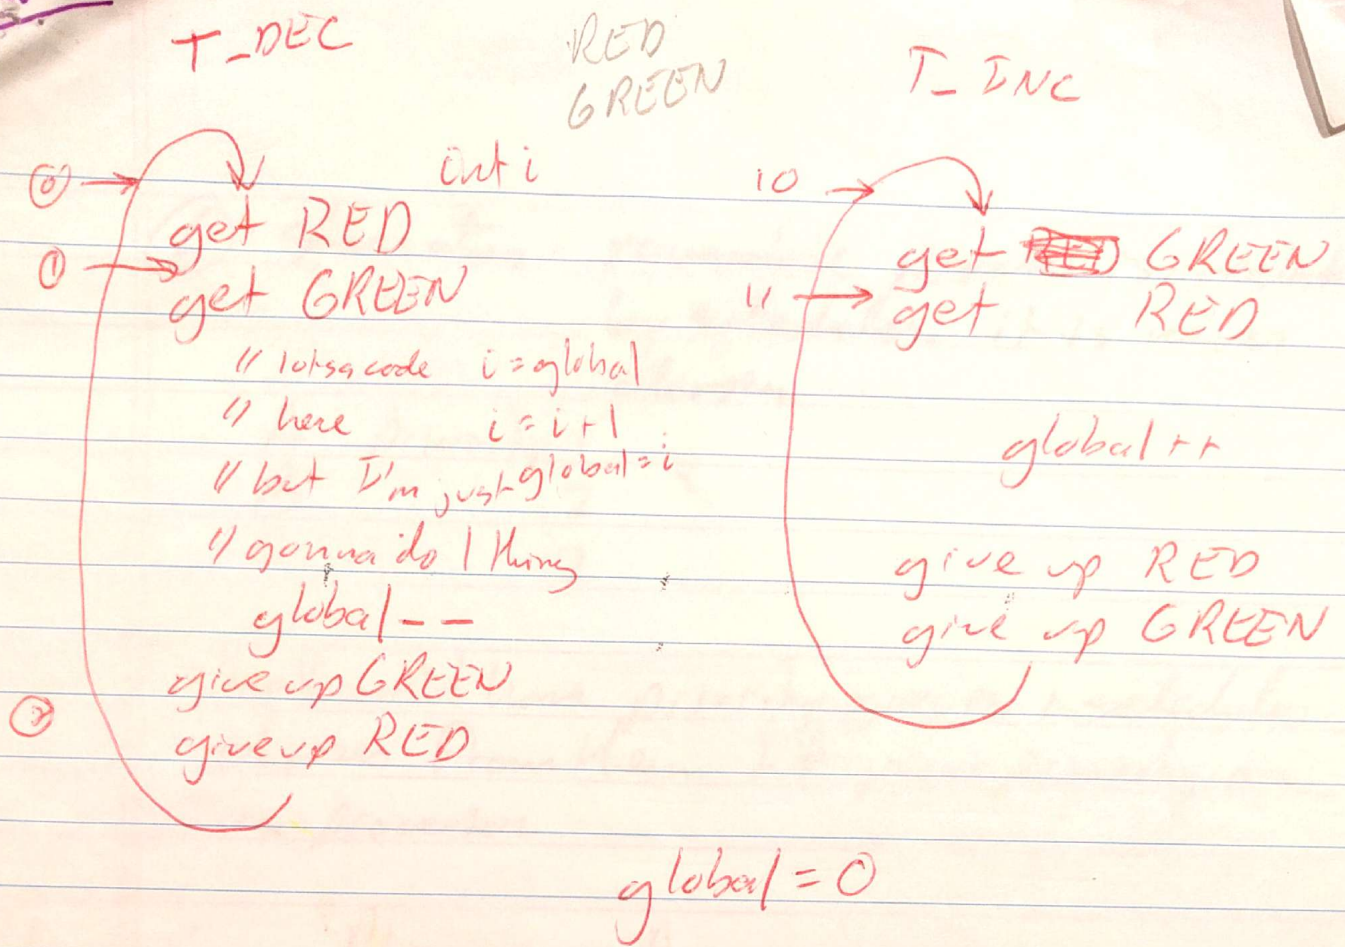 T_DEC
RED
GREEN
T_INC
int i
0
get RED
1
get GREEN
// lotsa code i = global
// here i = i + 1
// but I'm just global = i
// gonna do 1 thing
global--
give up GREEN
give up RED
10
get GREEN
11 get RED
global++
give up RED
give up GREEN
global = 0